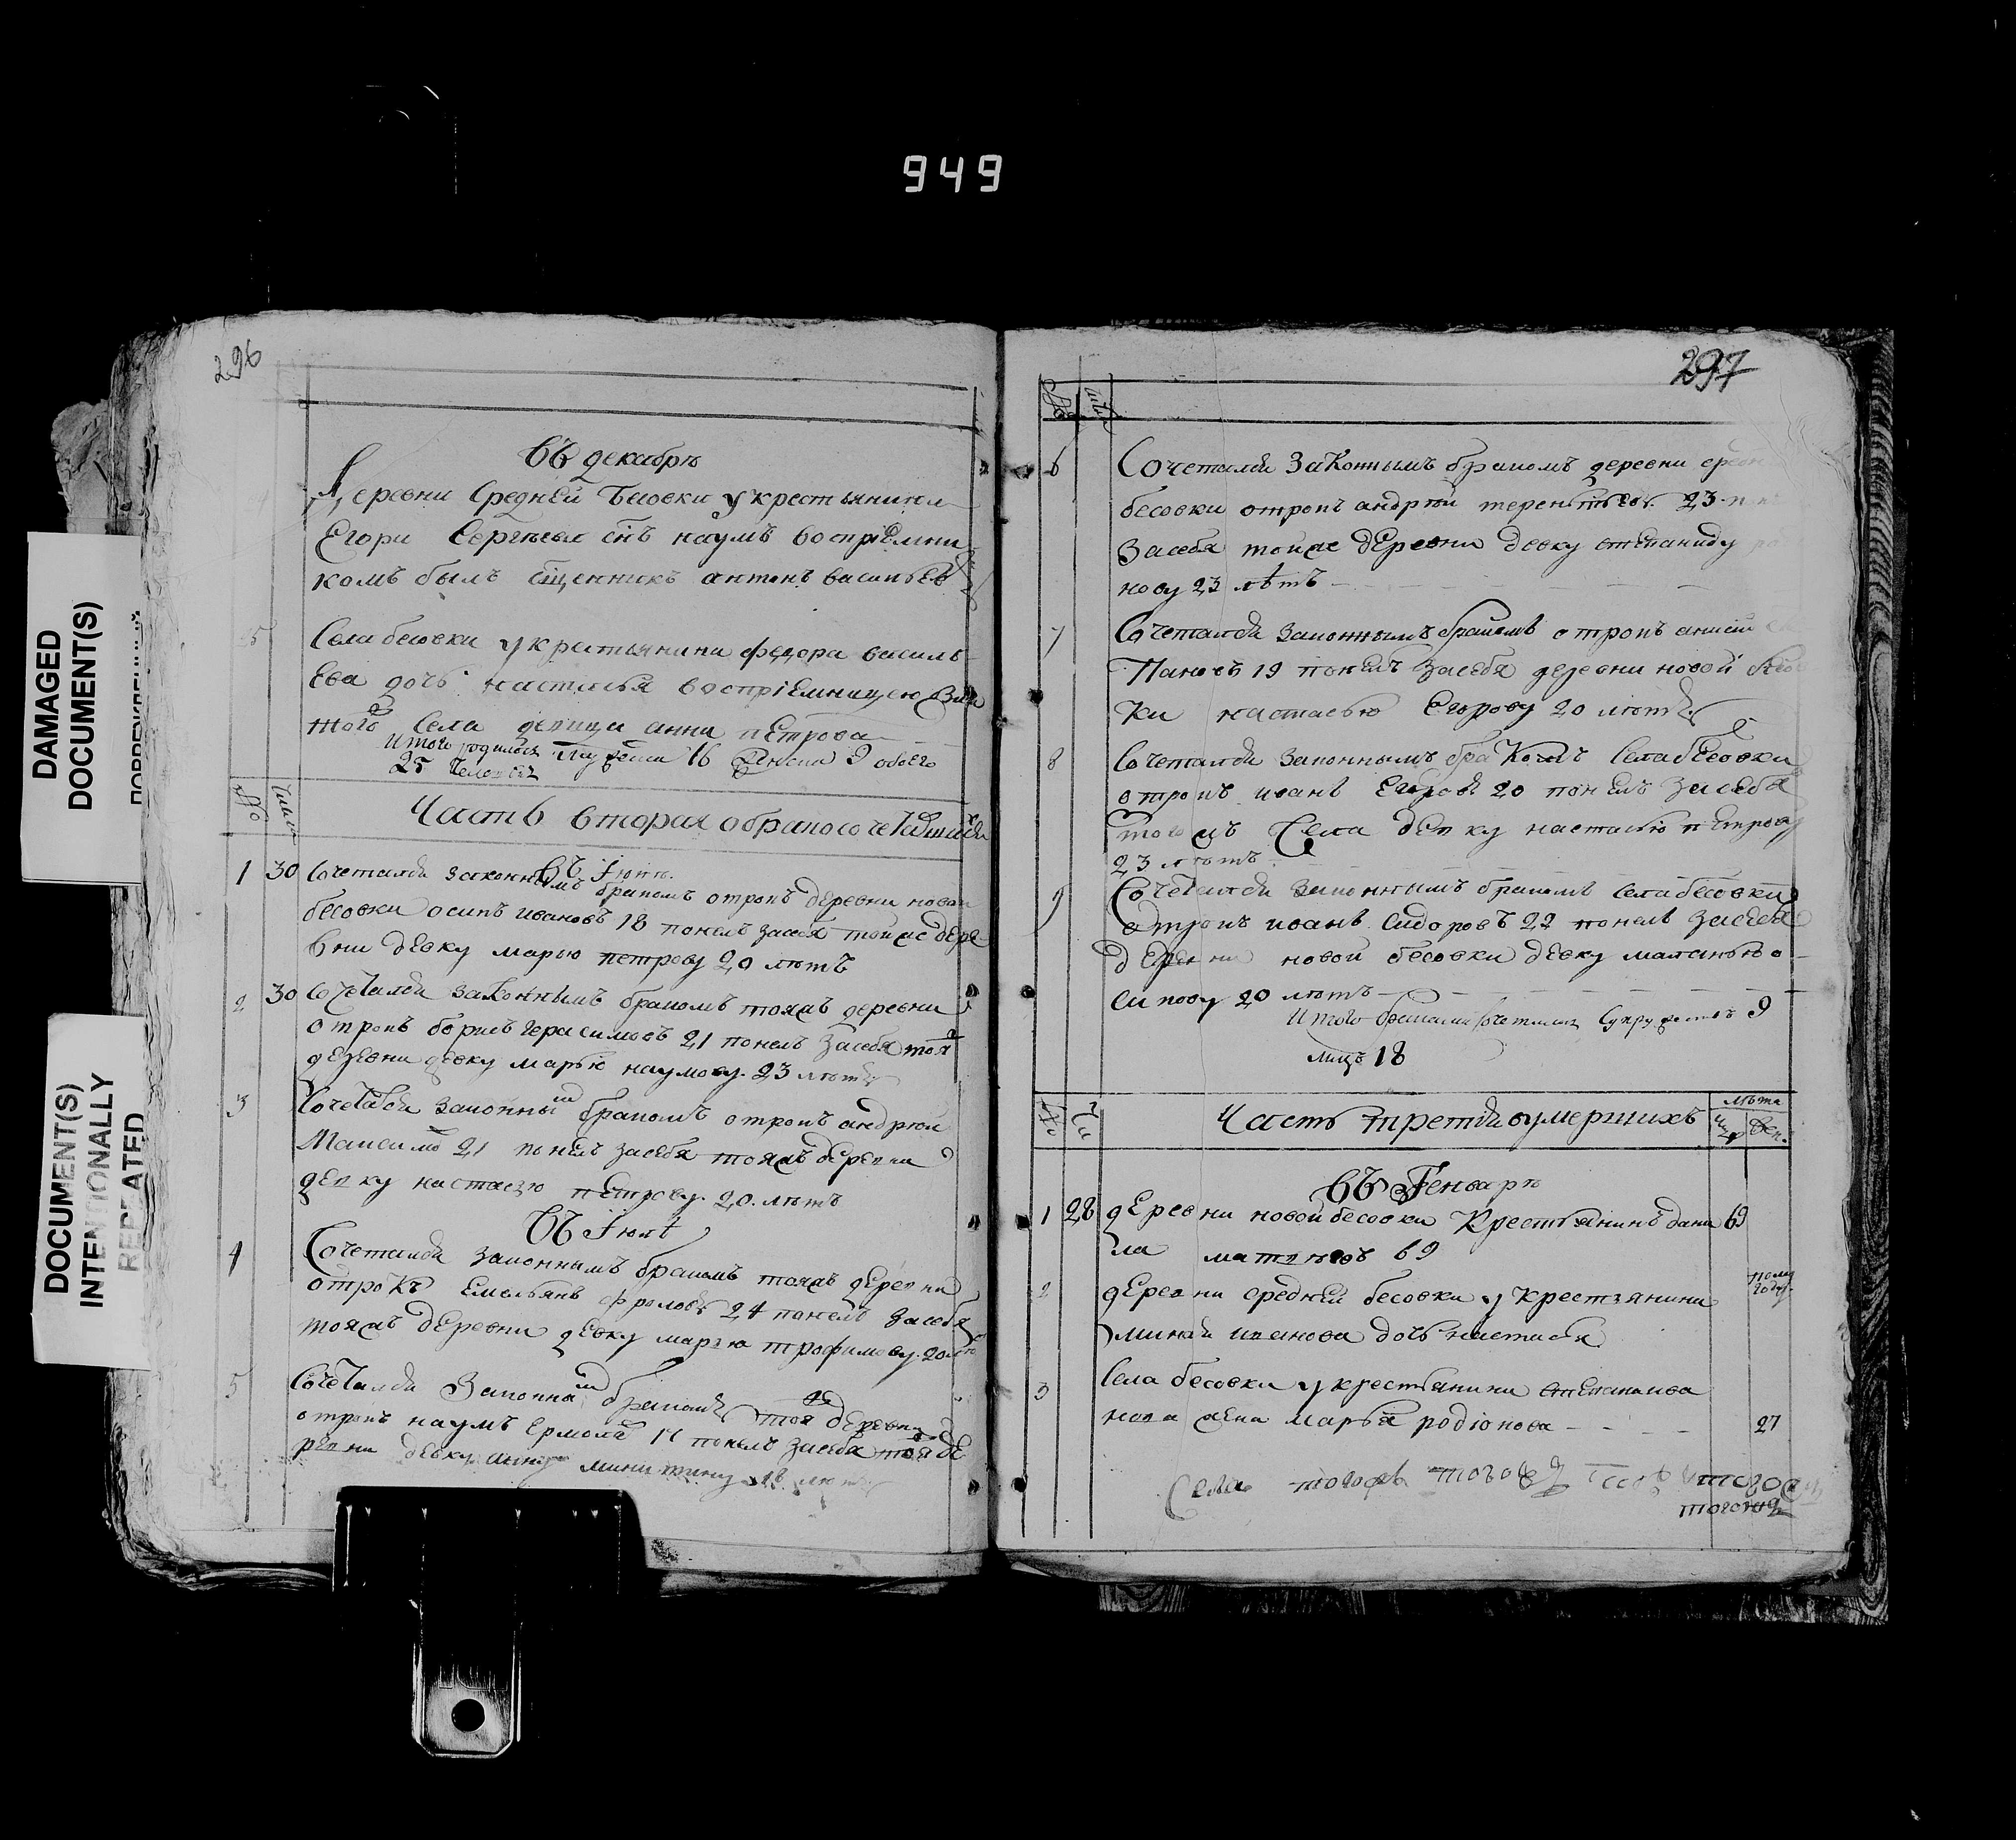 949
DAMAGED
DOCUMENT(S)
DOCUMENT(S)
INTENTIONALLY
REPEATED
296
въ декабрѣ
Деревни Средней Бесовки у крестьянина
Егора Сергѣева снъ наумъ воспрiемни
комъ былъ сщенникъ антонъ васильев
5 Села бесовки у крестьянина федора василь
Ева дочь настасья воспрiемницею
того Села девица анна петрова
Итого родилось 16 9 обоего
25 человек
№ число
Часть вторая о бракосочетавшихся
въ Iюнѣ
1 30 Сочетался законнымъ бракомъ отрокъ деревни новой
бесовки осипъ ивановъ 18 понелъ засебя тойже дере
вни девку марью петрову 20 лѣтъ
2 30 Сочетался законнымъ бракомъ тояжъ деревни
отрокъ борисъ герасимовъ 21 понелъ засебя тоя
деревни девку марью наумову 23 лѣтъ
3 Сочетался законны бракомъ отрокъ андрѣй
Максимо 21 понелъ засебя тояжъ деревни
девку настасю петрову 20 лѣтъ
въ Iюлѣ
4 Сочетался законнымъ бракомъ тояжъ деревни
отрокъ Емельянъ фроловъ 24 понелъ засебя
тояжъ деревни девку марью трофимову 20
5 Сочетался Законны бракомъ тояже деревни
отрокъ наумъ ермола понелъ засебя тояде
ревни девку 18
297
№
6 Сочетался Законнымъ бракомъ деревни
бесовки отрокъ андрѣй терентьев 23
засебя тойже деревни девку степаниду
нову 23 лѣтъ
7 Сочетался законнымъ бракомъ отрокъ
Пановъ 19 понелъ засебя деревни новой
ки настасью Егорову 20 лѣтъ
8 Сочетался законнымъ бракомъ Села бесовки
отрокъ иванъ Егоровъ 20 понелъ засебя
тогожъ Села девку настасью петрову
23 лѣтъ
9 Сочетался законнымъ бракомъ села бесовки
отрокъ иванъ сидоровъ 22 понелъ засебя
деревни новой бесовки девку маланью о
сипову 20 лѣтъ
Итого бракомъ сочеталось супружествъ 9
лицъ 18
№ Чи
Часть третья о умершихъ
лѣта
въ Генварѣ
1 28 деревни новой бесовки Крестьянинъ дани 69
ла матвѣевъ 69
2 деревни средней бесовки у крестьянина
миная иванова дочь настасья
полу
году
3 Села бесовки у крестьянина степана ива
нова жена марья родiонова 27
Села тогожъ